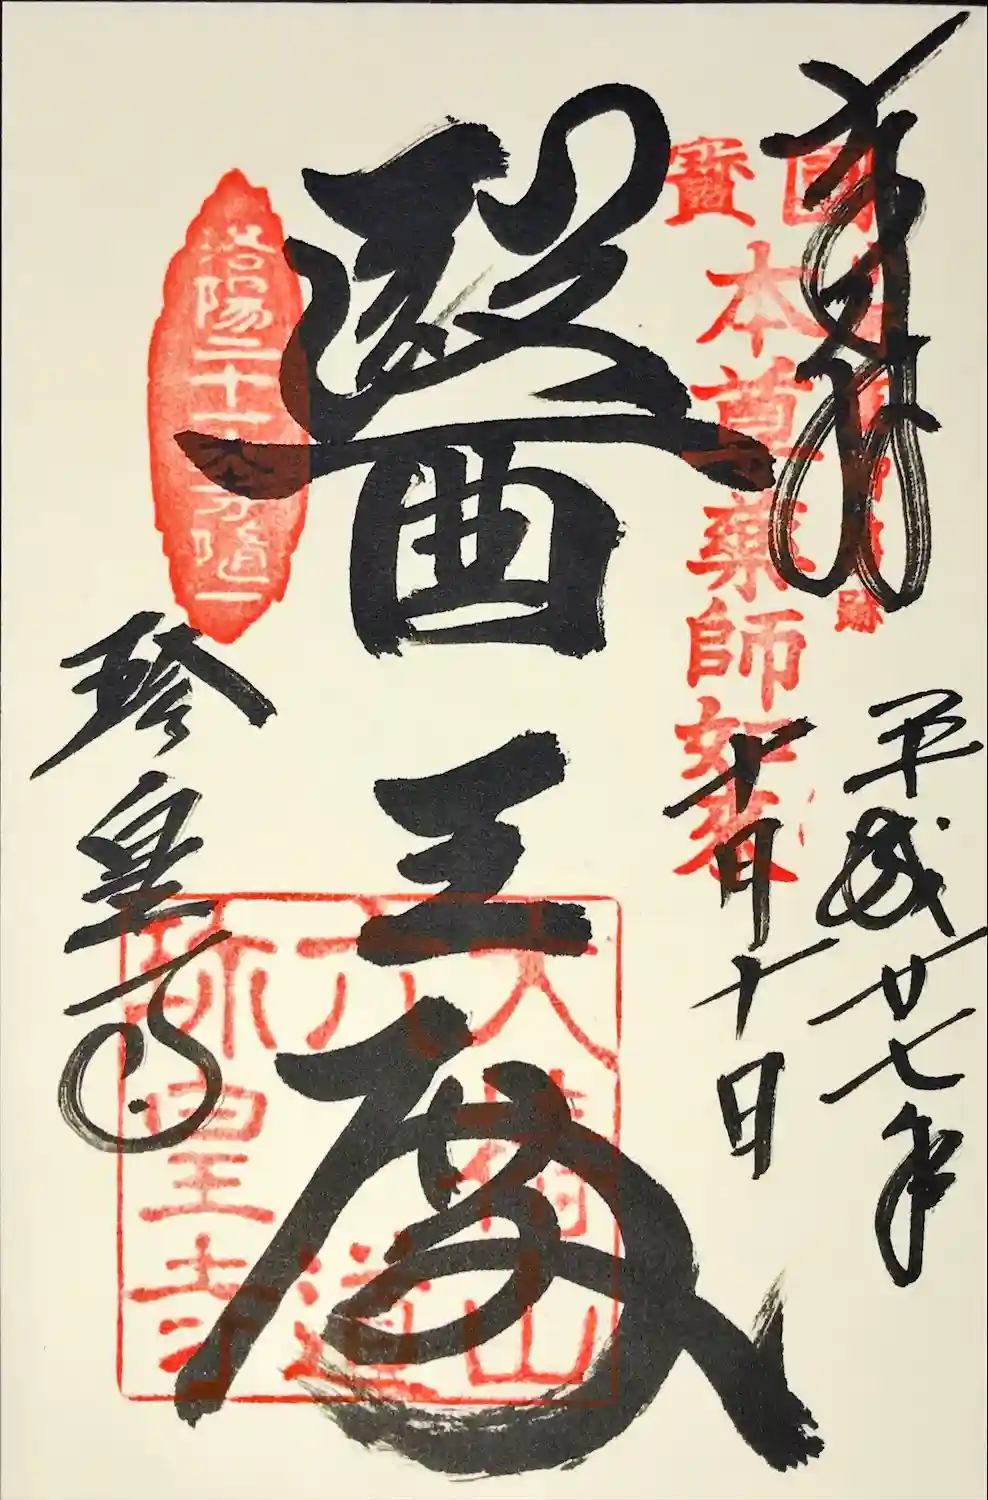 奉拝
平成廿七年
十月十日
國寶
本尊薬師如来
醫王殿
洛陽二十一大寺随一
大椿山
六道
珍皇寺
珍皇寺